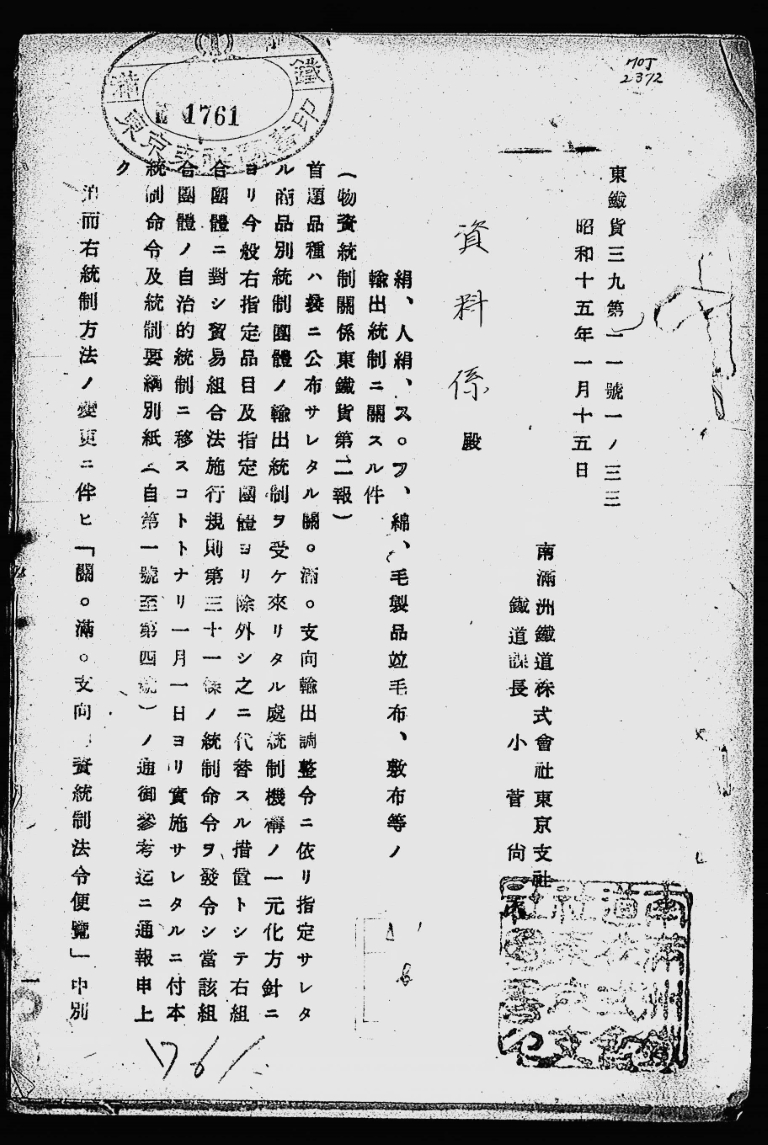 MOJ
2372
滿鐵
1761
東京支社圖書印
東鐵貨三九第一一號一ノ三三
昭和十五年一月十五日
資料係殿
南滿洲鐵道株式會社東京支社
鐵道課長 小菅尚
絹、人絹、ス。フ、綿、毛製品竝毛布、敷布等ノ
輸出統制ニ關スル件
(物資統制關係東鐵貨第二報)
首題品種ハ曩ニ公布サレタル關。滿。支向輸出調整令ニ依リ指定サレタ
ル商品別統制團體ノ輸出統制ヲ受ケ來リタル處統制機構ノ一元化方針ニ
ヨリ今般右指定品目及指定團體ヨリ除外シ之ニ代替スル措置トシテ右組
合團體ニ對シ貿易組合法施行規則第三十一條ノ統制命令ヲ發令シ當該組
合團體ノ自治的統制ニ移スコトトナリ一月一日ヨリ實施サレタルニ付本
統制命令及統制要綱別紙(自第一號至第四號)ノ通御參考迄ニ通報申上
ク
而右統制方法ノ變更ニ伴ヒ「關。滿。支向 資統制法令便覽」中別
一
1761